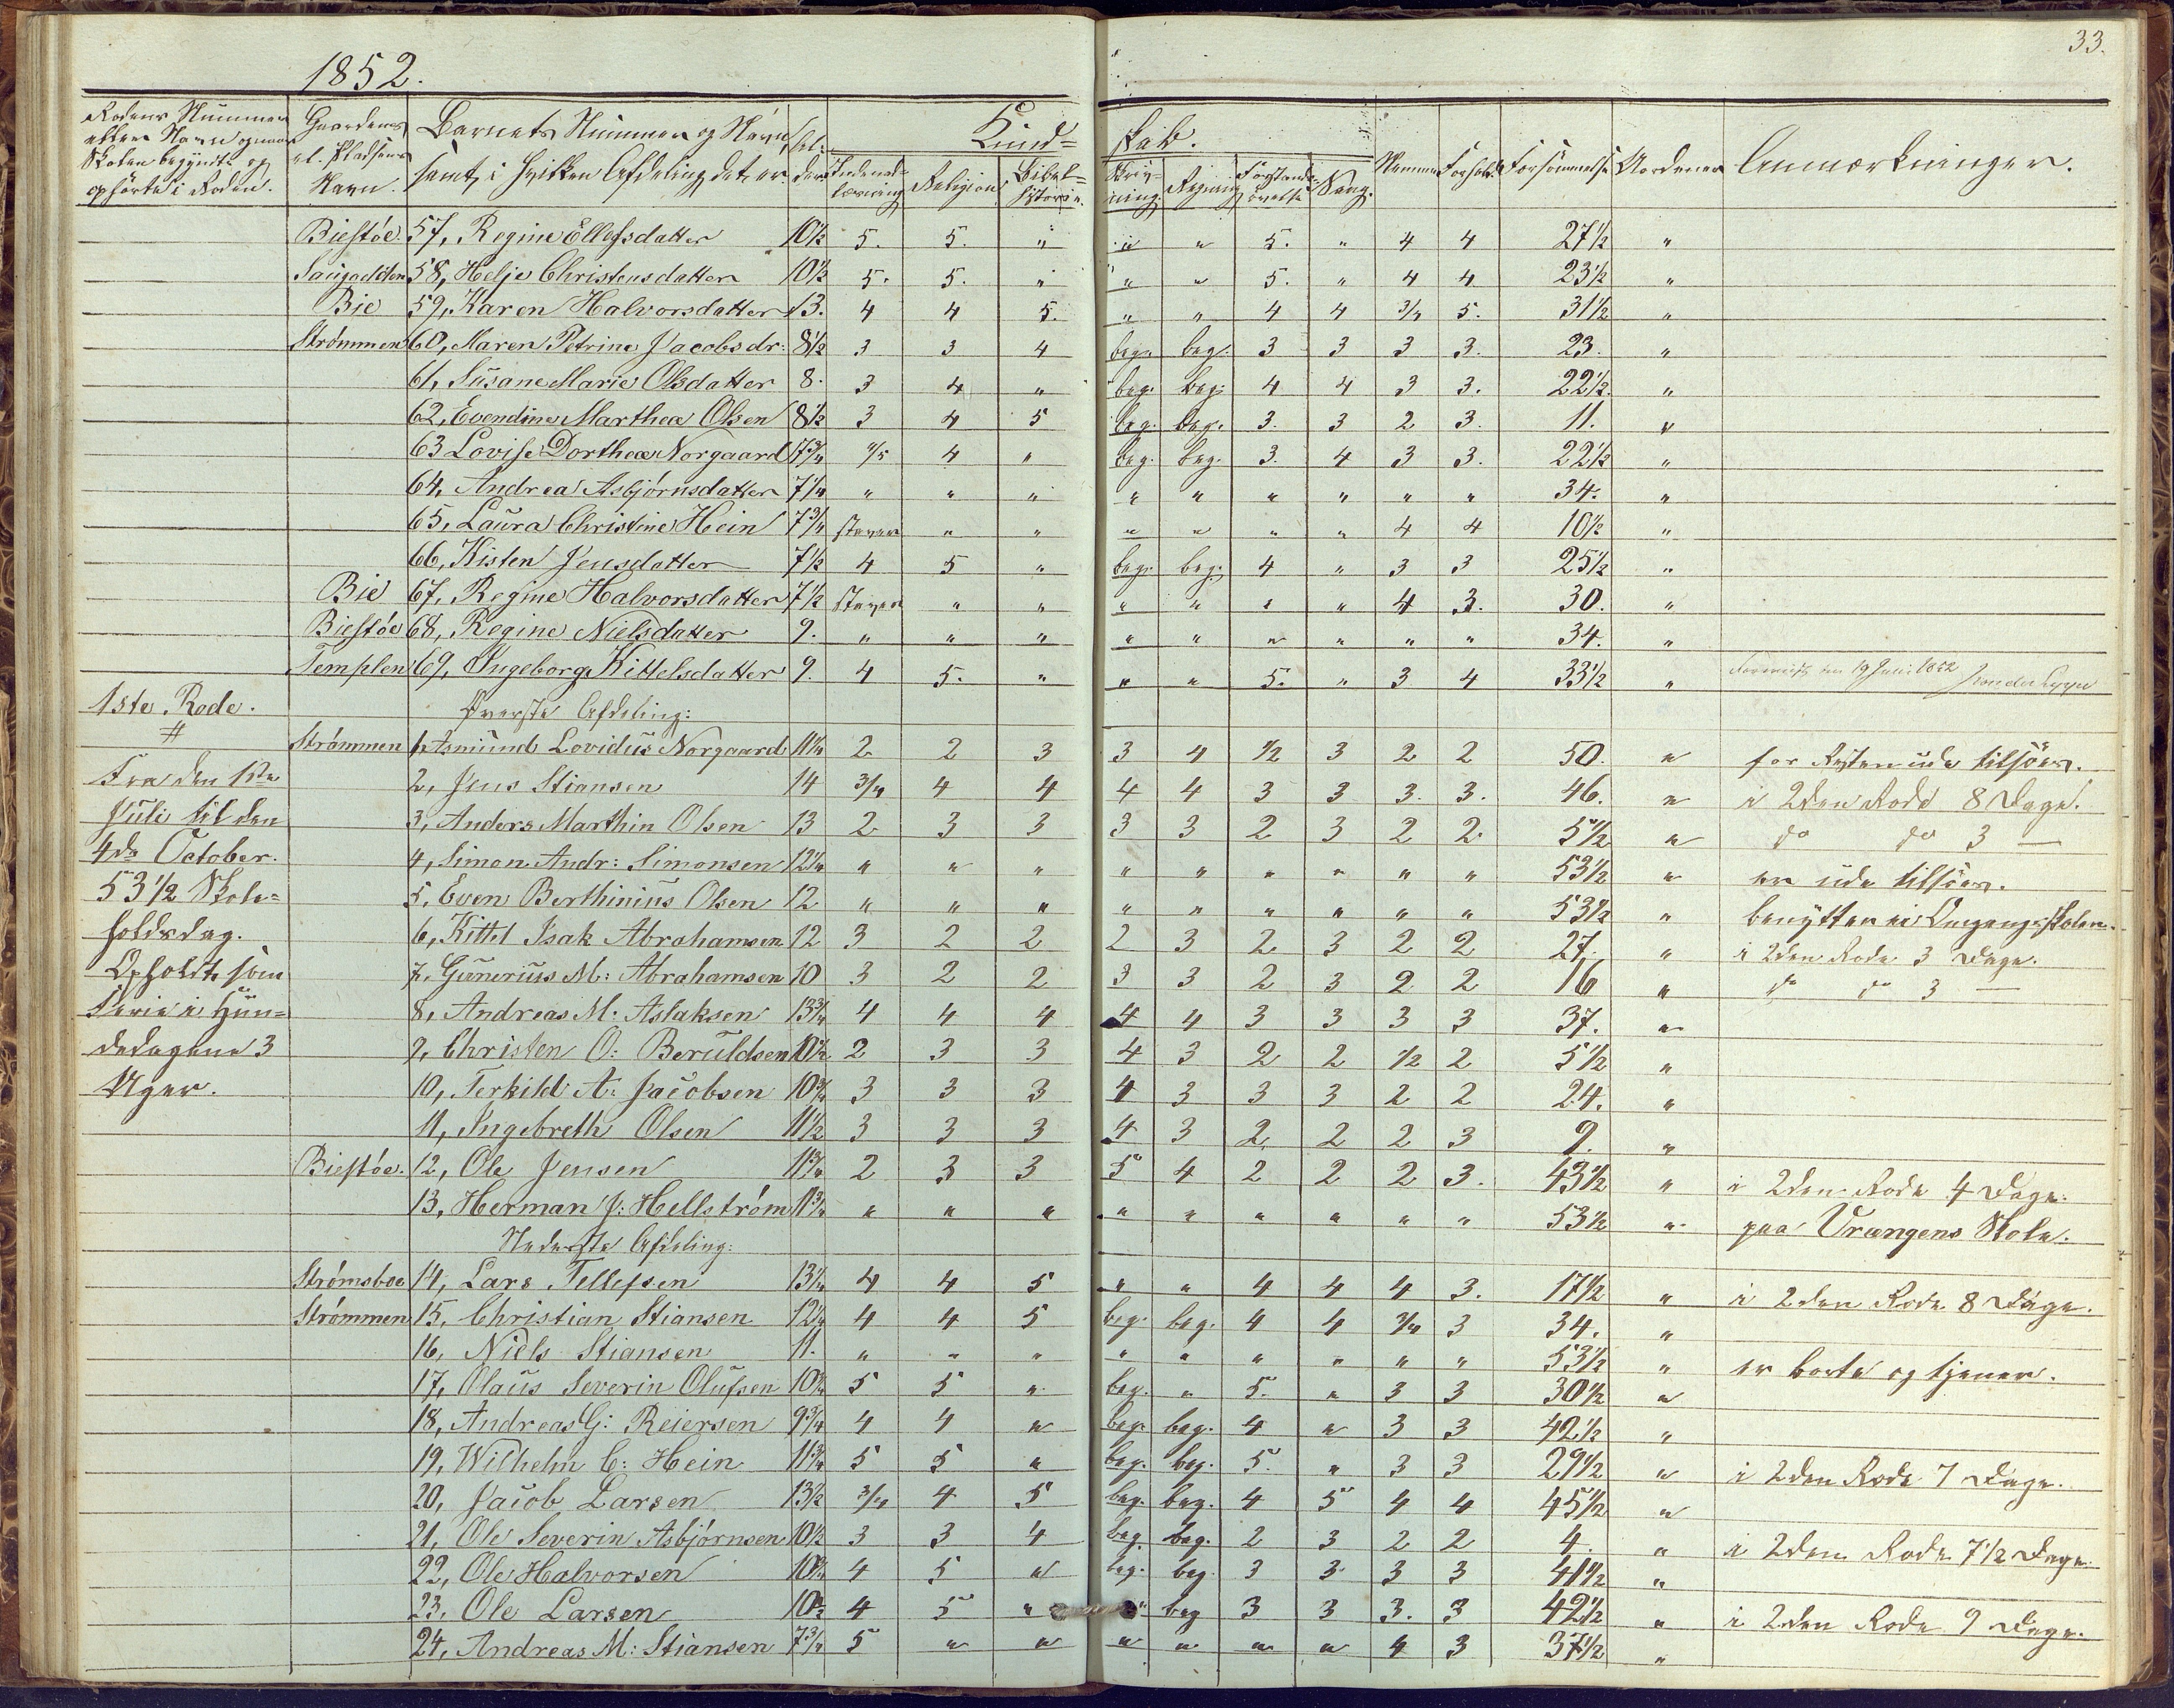 33.
1852.
Rodens Nummer eller Navn og naar Skolen begyndte og ophørte i Roden. | Gaardenes el. Pladsens Navn. | Barnets Nummer og Navn, samt i hvilken Afdeling det er. | Al-der | Kund=skab. | Nemme | Forhold | Forsømmelse | Anmærkninger.
Indenad-læsning | Religion | Bibel-historie. | Skriv-ning. | Regning | Forstands-øvelse | Sang.
Biestøe. 57, Regine Ellefsdatter 10½ 5. 5. " " " 5. " 4 4 27½ "
58, Helje Christensdatter 10½ 5. 5. " " " 5. " 4 4 23½ "
Bie 59, Karen Halvorsdatter 13. 4 4 5. " " 4 4 3/4 5. 31½ "
Strømmen 60, Maren Petrine Jacobsdr: 8½ 3 3 4 beg. beg. 3 3 3 3. 23. "
61, Susane Marie Olsdatter 8. 3 4 " beg. beg. 4 4 3 3. 22½. "
62, Evendine Marthea Olsen 8½ 3 4 5 beg. beg. 3. 3 2 3. 11. "
63 Lovise Dorthea Norgaard 7¾ 4/5 4 " beg. beg. 3. 4 3 3. 22½ "
64, Andrea Asbjørnsdatter 7¼ " " " " " " " " " 34. "
65, Laura Christine Hein 7¾ staver " " " " " " 4 4 10½ "
66, Kisten Jensdatter 7½ 4 5 " beg. beg. 4 " 3 3 25½ "
Bie 67, Regine Halvorsdatter 7½ staver " " " " " " 4 3. 30. "
Biestøe 68, Regine Nielsdatter 9. " " " " " " " " " 34. "
Templen 69, Ingeborg Kittelsdatter 9. 4 5. " " " 5. " 3 4 33½ " 19 Juni 1852
1ste Rode. Øverste Afdeling:
Strømmen 1, Asmund Lovidus Norgaard 11¼ 2 2 3 3 4 ½ 3 2 2 50. " for Resten ude tilsøes.
Fra den 1ste 2, Jens Stiansen 14 3/4 4 4 4 4 3 3 3. 3. 46. " i 2den Rode 8 Dage.
Juli til den 3, Anders Marthin Olsen 13 2 3 3 3 3 2 3 2 2 5½ " do do 3 —
4de October. 4, Simon Andr: Simonsen 12¼ " " " " " " " " " 53½ " er ude tilsøes.
53½ Skole= 5, Even Berthinius Olsen 12 " " " " " " " " " 53½ " benytter ei Omgangsskolen.
holdsdag. 6, Kittel Isak Abrahamsen 12 3 2 2 2 3 2 3 2 2 27. " i 2den Rode 3 Dage.
Opholdt som 7, Gunerius M: Abrahamsen 10 3 2 2 3 3 2 3 2 2 16 " do do 3 —
Ferie i Hun= 8, Andreas M. Aslaksen 13¾ 4 4 4 4 4 3 3 3 3 37. "
dedagene 3 9, Christen O: Beruldsen 10½ 2 3 3 4 3 2 2 ½ 2 5½ "
Uger. 10, Terkild A: Jacobsen 10¾ 3 3 3 4 3 3 3 2 2 24. "
11, Ingebreth Olsen 11½ 3 3 3 4 3 2 2 2 3 9. "
Biestøe. 12, Ole Jensen 11¾ 2 3 3 5 4 2 2 2 3. 43½ " i 2den Rode 4 Dage.
13, Herman J: Hellström 11¾ " " " " " " " " " 53½ " paa Vrængens Skole.
Nederste Afdeling:
Strømsboe 14, Lars Tellefsen 13¼ 4 4 5 " " 4 4 4 3. 17½ " i 2den Rode 8 Dage.
Strømmen 15, Christian Stiansen 12¼ 4 4 5 beg. beg. 4 4 3/4 3 34. "
16, Niels Stiansen 11. " " " " " " " " " 53½ " er borte og tjener.
17, Olaus Severin Olufsen 10¾ 5 5 " beg. " 5. " 3 3 30½ "
18, Andreas G: Reiersen 9¾ 4 4 " beg. beg. 4 " 3 3 42½ "
19, Wilhelm C: Hein 11¾ 5 5 " beg. beg. 5. " 3 3 29½ " i 2den Rode 7 Dage.
20, Jacob Larsen 13½ 3/4 4 5 beg. beg. 4 5 4 4 45½ "
21, Ole Severin Asbjørnsen 10½ 3 3 4 beg. beg. 2 3 2 2 4. " i 2den Rode 7½ Dage.
22, Ole Halvorsen 10¾ 4 5 " beg. beg. 3 3 3 3 41½ "
23, Ole Larsen 10½ 4 5 " " beg 3 3 3. 3 42½ " i 2den Rode 9 Dage.
24, Andreas M: Stiansen 7¾ 5 " " " " " " 4 3 37½ "